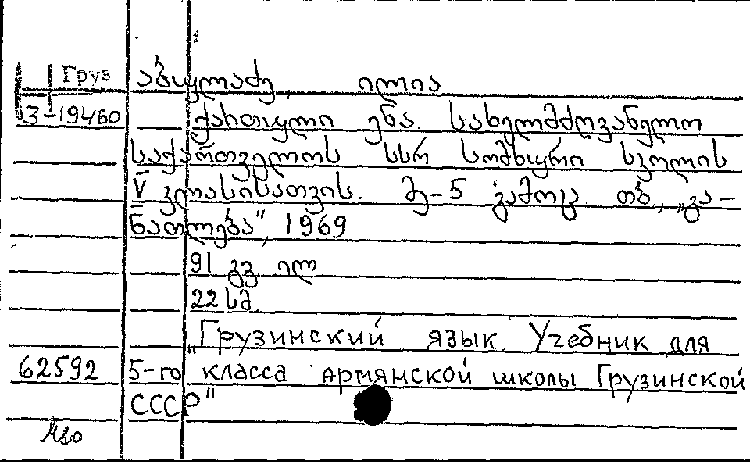 Груз აბულაძე ილია
3-19460 ქართული ენა. სახელმძღვანელო
საქართველოს სსრ სომხური სკოლის
V კლასისათვის. მე-5 გამოც. თბ., „გა-
ნათლება“, 1969
91 გვ. ილ.
22 სმ.
„Грузинский язык. Учебник для
62592 5-го класса армянской школы Грузинской
СССР"